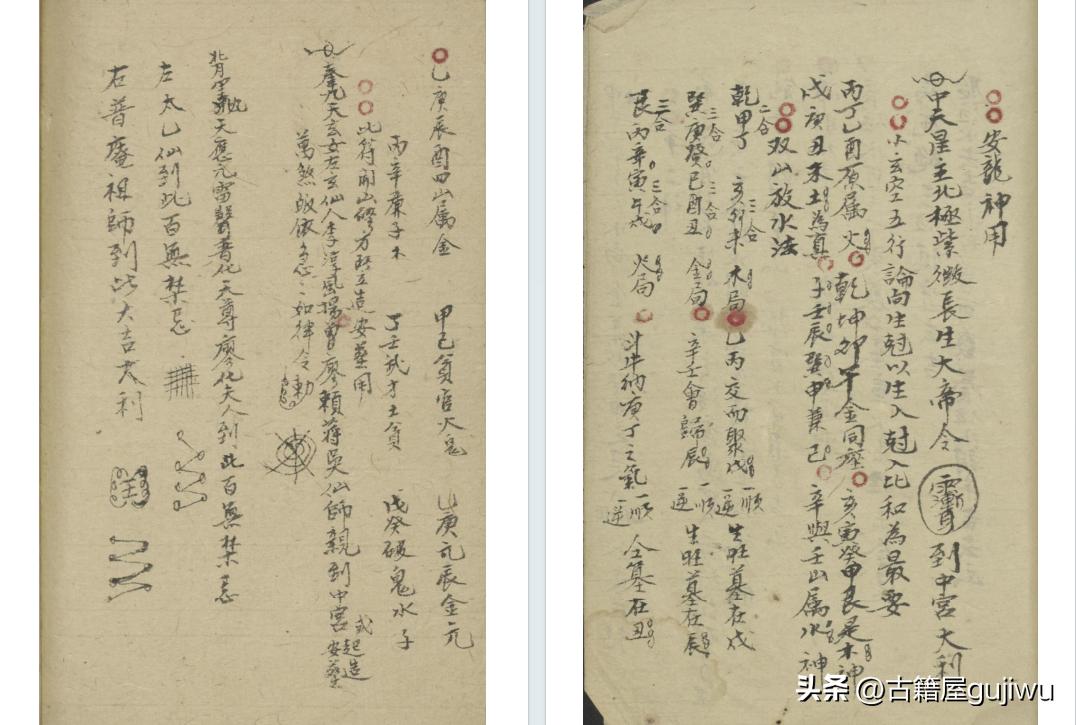 安龍神用
中天星主北極紫微長生大帝令 到中宮大利
小玄空五行論向生尅以生入尅入比和為最要
丙丁乙酉原属火 乾坤卯午金同座 亥寅癸甲艮是木神
戌庚丑未土為真 子壬辰巽申兼己 辛與壬山属水神
双山放水法
乾甲丁 三合 亥卯未 三合 木局 乙丙交而聚戌 一順一逆 生旺墓在戌
巽庚癸 三合 巳酉丑 三合 金局 辛壬會歸辰 一順一逆 生旺墓在辰
艮丙辛 三合 寅午戌 三合 火局 斗牛納庚丁之氣 一順一逆 仝墓在丑
乙庚辰酉四山属金 甲己貪官火 山庚元辰金元
丙辛 子木 丁壬武才土貪 戊癸破鬼水子
此符開山 方 立造安墓用
奉九天玄女左玄仙人李淳風楊曾廖賴蒋吳仙師親到中宮 或起造安墓
萬煞皈依急 如律令 勅
天應元雷聲普化天尊廖化夫人到此百無禁忌
左太乙仙到此百無禁忌
右普庵祖師到此大吉大利
头条 @古籍屋gujiwu